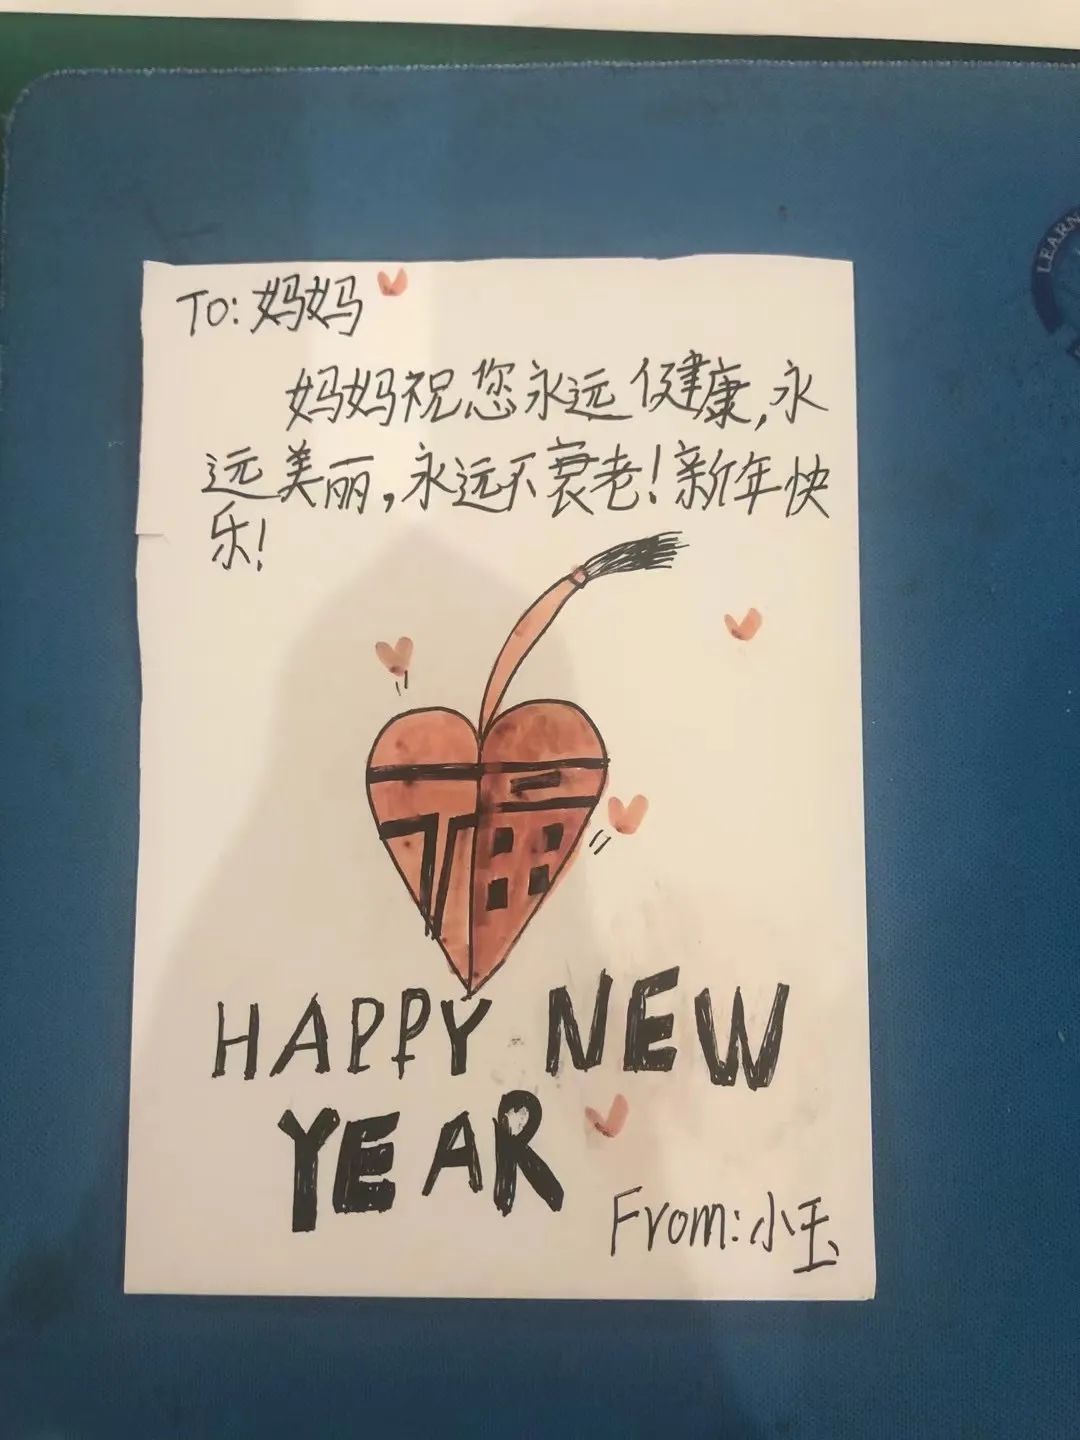 To: 妈妈
妈妈祝您永远健康,永
远美丽,永远不衰老!新年快
乐!
福
HAPPY NEW
YEAR
From: 小玉
LEARN